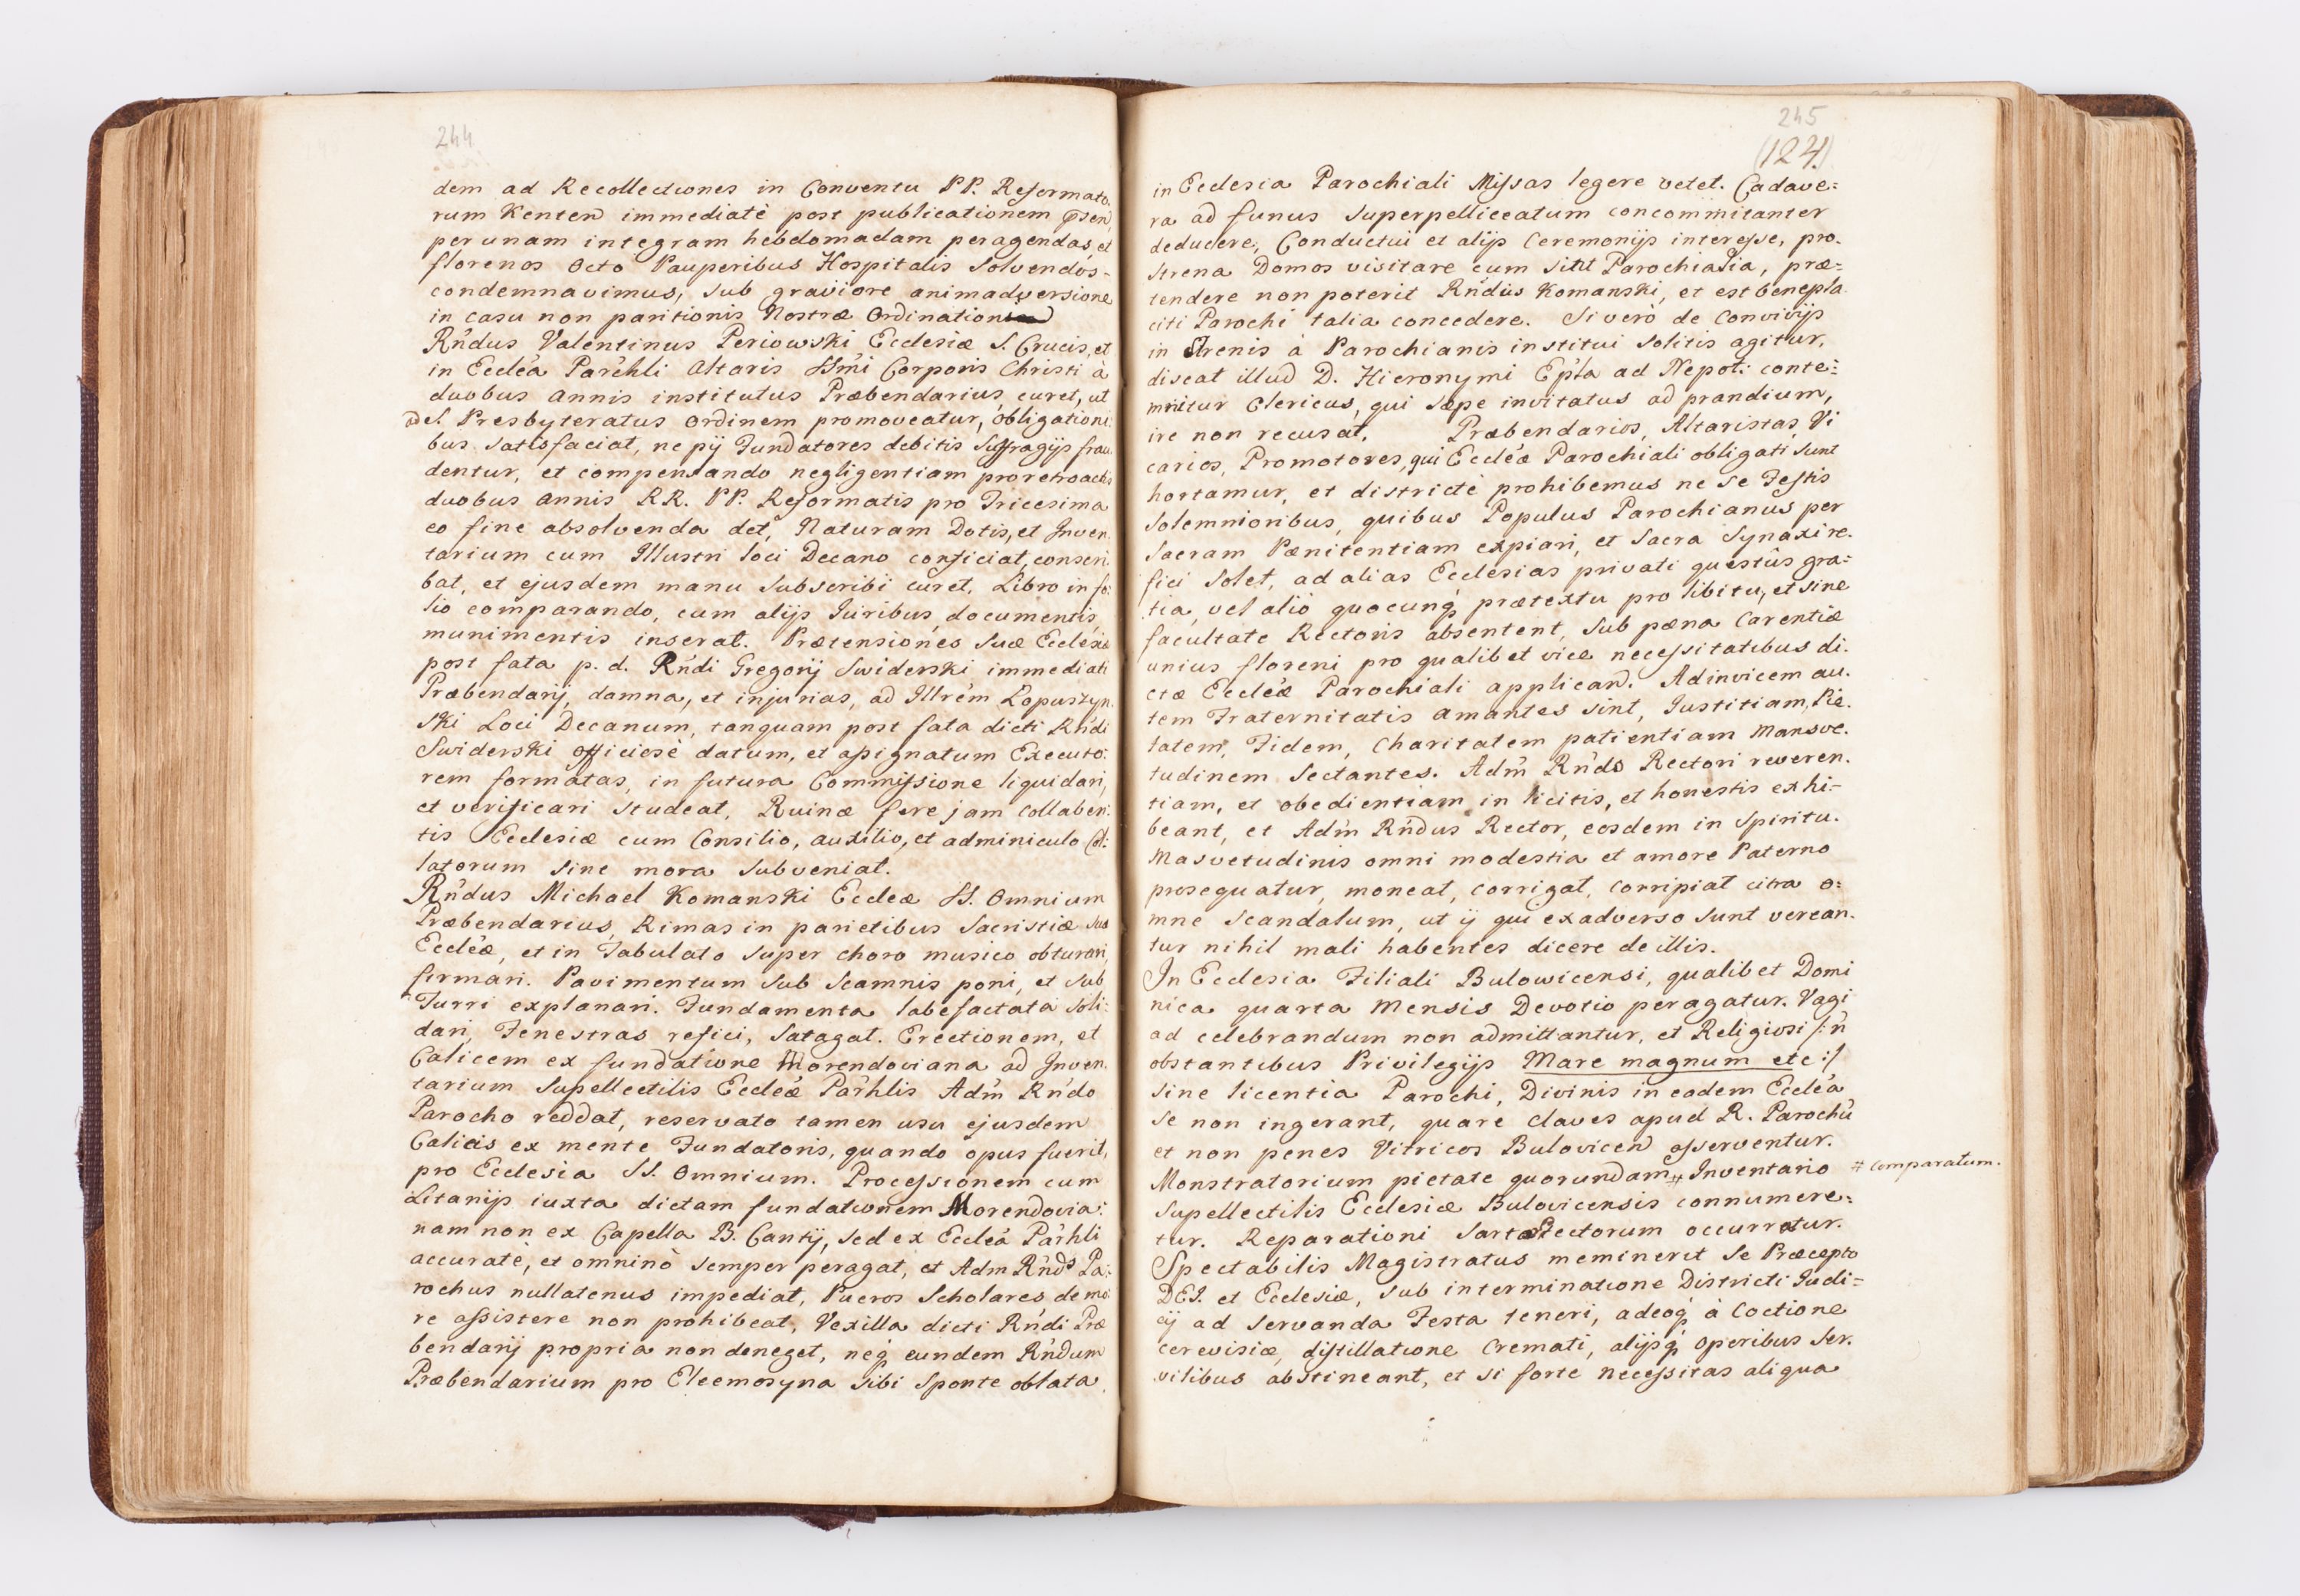 244
dem ad Recollectiones in Conventu PP. Reformato,
rum Kenten immediatè post publicationem
per unam integram hebdomadam peragendas, et
florenos Octo Pauperibus Hospitalis Solvendos-
condemnavimus, sub graviore animadversione
in casu non paritionis Nostræ
Rńdus Valentinus Periowski Ecclesiæ S. Crucis, et
in Eccléa Paréhli Altaris SSmi Corporis Christi à
duobus annis institutus Præbendarius, curet, ut
ad S. Presbyteratus Ordinem promoveatur, obligationi:
bus satisfaciat, ne pij Fundatores debitis Suffragijs frau
dentur, et compensando negligentiam pro retroactis
duobus annis RR. PP. Reformatis pro Tricesima
eo fine absolvenda det, Naturam Dotis, et Inven
tarium cum Illustri loci Decano conficiat, conscri
bat, et ejusdem manu subscribi curet, Libro in fo:
lio comparando, cum alijs Iuribus, documentis,
munimentis inserat. Prætensiones suæ Eccléæ
post fata p. d. Rńdi Gregorij Swiderski immediati
Præbendarij, damna, et injurias, ad Illrém Lopuszyn
ski Loci Decanum, tanquam post fata dicti Rńdi
Swiderski officiosè datum, et assignatum Executo:
rem formatas, in futura Commissione liquidari,
et verificari studeat, Ruinæ fere jam collaben:
tis Ecclesiæ cum Consilio, auxilio, et adminiculo Col:
latorum sine mora subveniat.
Rńdus Michael Komanski Eccleæ SS. Omnium
Præbendarius, Rimas in parietibus Sacristiæ suæ
Eccléæ, et in Tabulato super choro musico obturari,
firmari. Pavimentum sub Scamnis poni, et sub
Turri explanari. Fundamenta labefactata soli:
dari, Fenestras refici, satagat. Erectionem, et
Calicem ex fundatione Morendoviana ad Inven.
tarium Supellectilis Eccléæ Paŕhlis Adḿ Rńdo
Parocho reddat, reservato tamen usu ejusdem
Calicis ex mente Fundatoris, quando opus fuerit,
pro Ecclesia SS. Omnium. Processionem cum
Litanijs iuxta dictam fundationem Morendovia:
nam non ex Capella B. Cantij, sed ex Eccléa Paŕhli
accuratè, et omninò semper peragat, et Adm Rńds Pa:
rochus nullatenus impediat, Pueros Scholares de mo:
re assistere non prohibeat, Vexilla dicti Rńdi Præ
bendarij propria non deneget, neq́ eundem Rńdum
Præbendarium pro Eleemosyna sibi sponte oblata
245
(124)
in Ecclesia Parochiali Missas legere vetet. Cadave:
ra ad funus superpelliceatum concommitanter
deducere, Conductui et alijs Ceremonijs interesse, pro.
strena Domos visitare cum sint Parochialia, præ:
tendere non poterit Rńdus Komanski, et est benepla
citi Parochi talia concedere. Si verò de Convivijs
in Strenis à Parochianis institui solitis agitur,
discat illud D. Hieronymi Epla ad Nepot: conte:
mnitur Clericus, qui sæpe invitatus ad prandium,
ire non recusat. Præbendarios, Altaristas, Vi
carios, Promotores, qui Eccléæ Parochiali obligati sunt
hortamur, et districtè prohibemus ne se Festis
Solemnioribus, quibus Populus Parochianus per
Sacram Pænitentiam expiari, et Sacra Synaxi re.
fici solet, ad alias Ecclesias privati questûs gra:
tia, vel alio quocunq́ prætextu pro libitu, et sine
facultate Rectoris absentent, sub pæna Carentiæ
unius floreni pro qualibet vice necessitatibus di.
ctæ Eccléæ Parochiali applican. Adinvicem au.
tem Fraternitatis amantes sint, Iustitiam, Pie.
tatem, Fidem, Charitatem patientiam Mansve.
tudinem sectantes. Adḿ Rńdo Rectori reveren.
tiam, et obedientiam in licitis, et honestis exhi-
beant, et Adḿ Rńdus Rector, eosdem in Spiritu.
Masvetudinis omni modestia et amore Paterno
prosequatur, moneat, corrigat, corripiat citra o:
mne scandalum, ut ij qui ex adverso sunt verean.
tur nihil mali habentes dicere de illis.
In Ecclesia Filiali Bulowicensi, qualibet Domi
nica quarta Mensis Devotio peragatur. Vagi
ad celebrandum non admittantur, et Religiosi /: ń
obstantibus Privilegijs Mare magnum etc :/
sine licentia Parochi, Divinis in eadem Eccléa
se non ingerant, quare claves apud R. Parochū
et non penes Vitricos Bulovicen asserventur.
Monstratorium pietate quorundam # Inventario # comparatum.
Supellectilis Ecclesiæ Bulovicensis connumere:
tur. Reparationi SartaTectorum occurratur.
Spectabilis Magistratus meminerit se Præcepto
DEI. et Ecclesiæ, sub interminatione Districti Iudi=
cij ad servanda Festa teneri, adeoq́ à Coctione
cerevisiæ, distillatione Cremati, alijsq́ operibus ser.
vilibus abstineant, et si forte necessitas aliqua